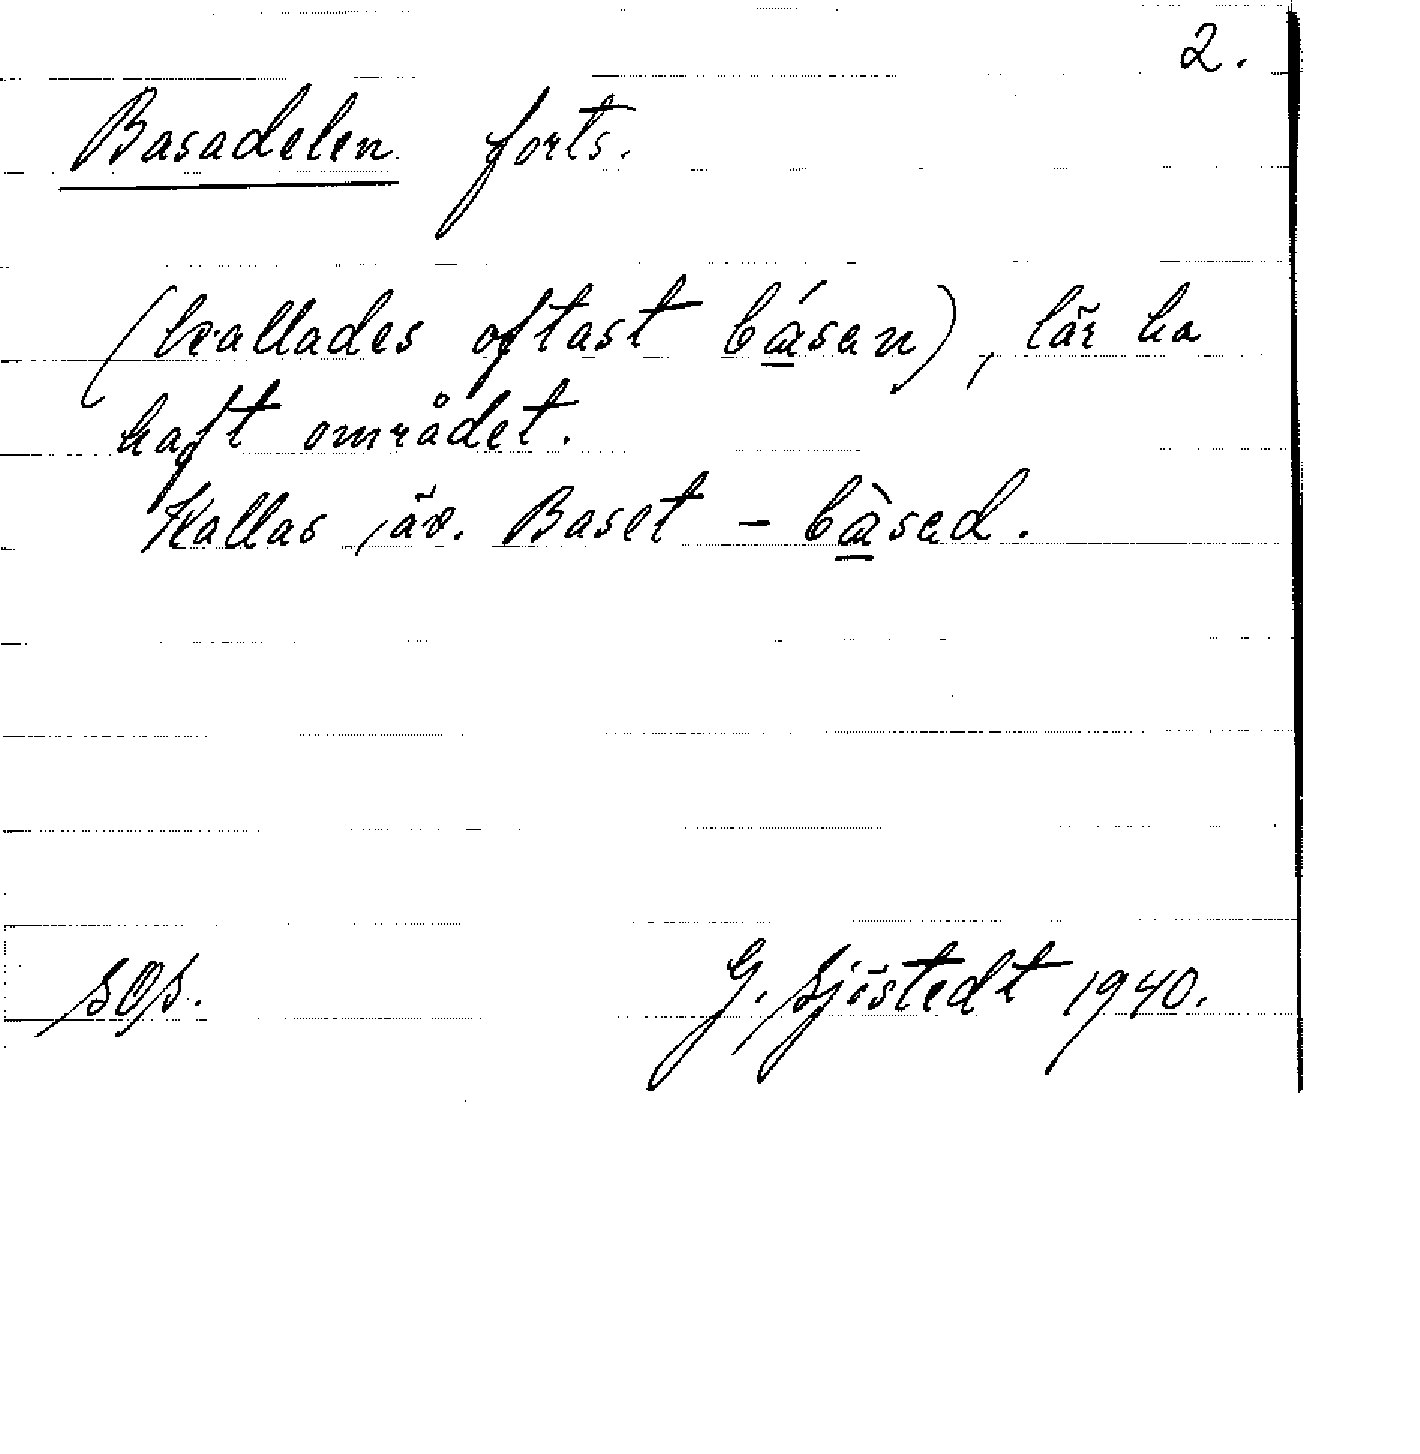 2.
Basadelen forts.
(kallades oftast bá̱san), lär ha
haft området.
Kallas äv. Baset - bà̱sad.
sOs. G. Sjöstedt 1940.